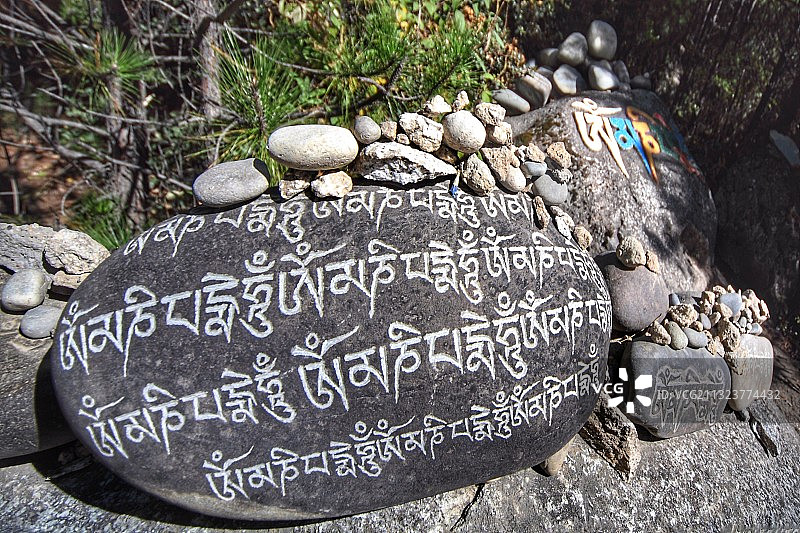 ཨོཾ་མ་ཎི་
ཨོཾ་མ་ཎི་པདྨེ་ཧཱུྃ་ཨོཾ་མ་ཎི་པདྨེ་ཧཱུྃ
ཨོཾ་མ་ཎི་པདྨེ་ཧཱུྃ་ཨོཾ་མ་ཎི་པདྨེ་ཧཱུྃ་ཨོཾ་མ་ཎི་པདྨེ
ཨོཾ་མ་ཎི་པདྨེ་ཧཱུྃ་ཨོཾ་མ་ཎི་པདྨེ་ཧཱུྃ་ཨོཾ་མ་ཎི་
ཨོཾ་མ་ཎི་པདྨེ་ཧཱུྃ་ཨོཾ་མ་ཎི་པདྨེ་ཧཱུྃ་ཨོཾ་མ་ཎི་པདྨེ་ཧཱུྃ
VCG
ID:VCG211323774432